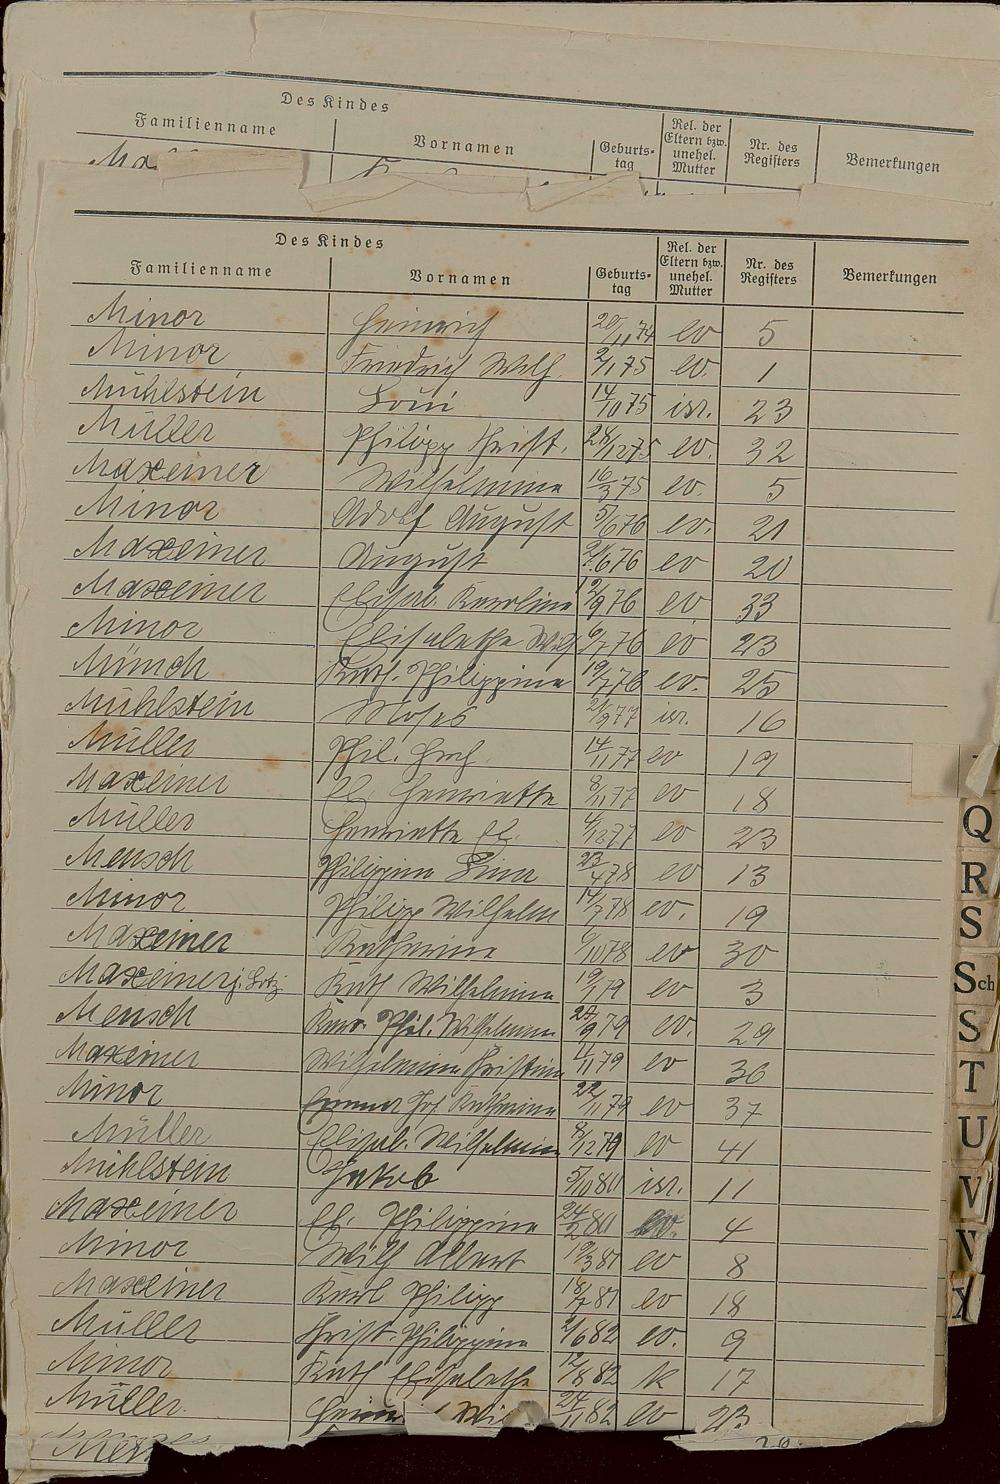 Des Kindes
Familienname Vornamen Geburts-tag Rel. der Eltern bzw. unehel. Mutter Nr. des Registers Bemerkungen
Des Kindes
Familienname Vornamen Geburts-tag Rel. der Eltern bzw. unehel. Mutter Nr. des Registers Bemerkungen
Minor Heinrich 20/11 74 ev 5
Minor Friedrich Wilh. 2/1 75 ev. 1
Mühlstein 14/10 75 isr. 23
Müller Philipp Christ. 28/12 75 ev. 32
Maxeiner Wilhelmine 16/3 75 ev. 5
Minor Adolf August 5/6 76 ev. 21
Maxeiner August 2/6 76 ev 20
Maxeiner Elisab. Karoline 12/9 76 ev 33
Minor Elisabethe Wilh 6/7 76 ev 23
Münch Kath. Philippine 19/7 76 ev. 25
Mühlstein Moses 21/9 77 isr. 16
Müller Phil. 14/11 77 ev 19
Maxeiner El. Henriette 8/11 77 ev 18
Müller Henriette El. 4/12 77 ev 23
Mensch Philippine Lina 23/4 78 ev 13
Minor Philipp Wilhelm 14/7 78 ev. 19
Maxeiner Katharina /10 78 ev 30
Maxeiner Kath Wilhelmine 79 ev 3
Mensch Phil. Wilhelmine 9 79 ev. 29
Maxeiner Wilhelmine Christine 11 79 ev 36
Minor Katharina 22/11 79 ev 37
Müller Elisab. Wilhelmine 8/12 79 ev 41
Mühlstein Jakob 5/10 80 isr. 11
Maxeiner El. Philippine 24/2 80 ev. 4
Minor Wilh Albert 19/3 81 ev 8
Maxeiner Karl Philipp 18/7 81 ev 18
Müller Christ. Philippine 2/6 82 ev. 9
Minor Kath Elisabethe 12/8 82 k 17
Müller 24/11 82 ev 23
Q
R
S
Sch
S
T
U
V